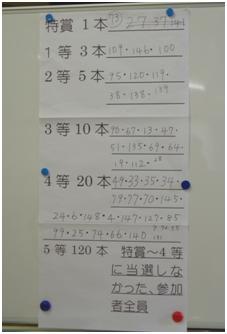 特賞 1本 (73) 27 37
1等 3本 109・146・100
2等 5本 95・120・119・
38・138・139
3等10本 90・67・13・47・
51・135・69・64・
19・112・28
4等 20本 49・33・35・34・
79・77・70・145・
24・6・148・4・147・127・85
99・25・74・66・140
5等 120本 特賞～4等
に当選しな
かった、参加
者全員